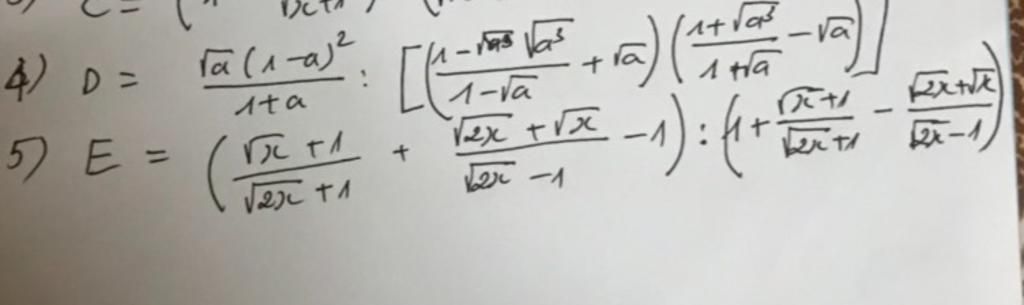 4) D = √a (1-a)² / 1+a : [(1-√a³ / 1-√a + √a)(1+√a³ / 1+√a - √a)]
5) E = (√x+1 / √2x+1 + √2x+√x / √2x-1 - 1) : (1 + √x+1 / √2x+1 - √2x+√x / √2x-1)